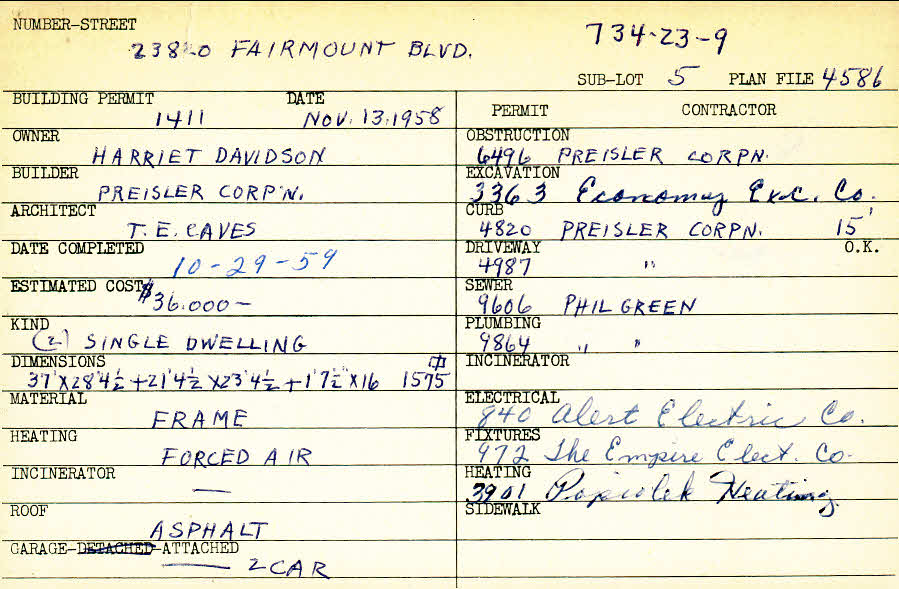 NUMBER-STREET
23820 FAIRMOUNT BLVD.
734-23-9
SUB-LOT 5 PLAN FILE 4586
BUILDING PERMIT DATE
1411 NOV. 13, 1958
OWNER
HARRIET DAVIDSON
BUILDER
PREISLER CORP'N.
ARCHITECT
T. E. EAVES
DATE COMPLETED
10-29-59
ESTIMATED COST
$36,000-
KIND
(2) SINGLE DWELLING
DIMENSIONS
37'X28'4½ +21'4½ X23'4½ +1'7½"X16 1575
MATERIAL
FRAME
HEATING
FORCED AIR
INCINERATOR
—
ROOF
ASPHALT
GARAGE-DETACHED-ATTACHED
2 CAR
PERMIT CONTRACTOR
OBSTRUCTION
6496 PREISLER CORPN.
EXCAVATION
3363 Economy Exc. Co.
CURB
4820 PREISLER CORPN. 15'
DRIVEWAY O.K.
4987 "
SEWER
9606 PHIL GREEN
PLUMBING
9864 " "
INCINERATOR
ELECTRICAL
840 Alert Electric Co.
FIXTURES
972 The Empire Elect. Co.
HEATING
3901 Heating
SIDEWALK